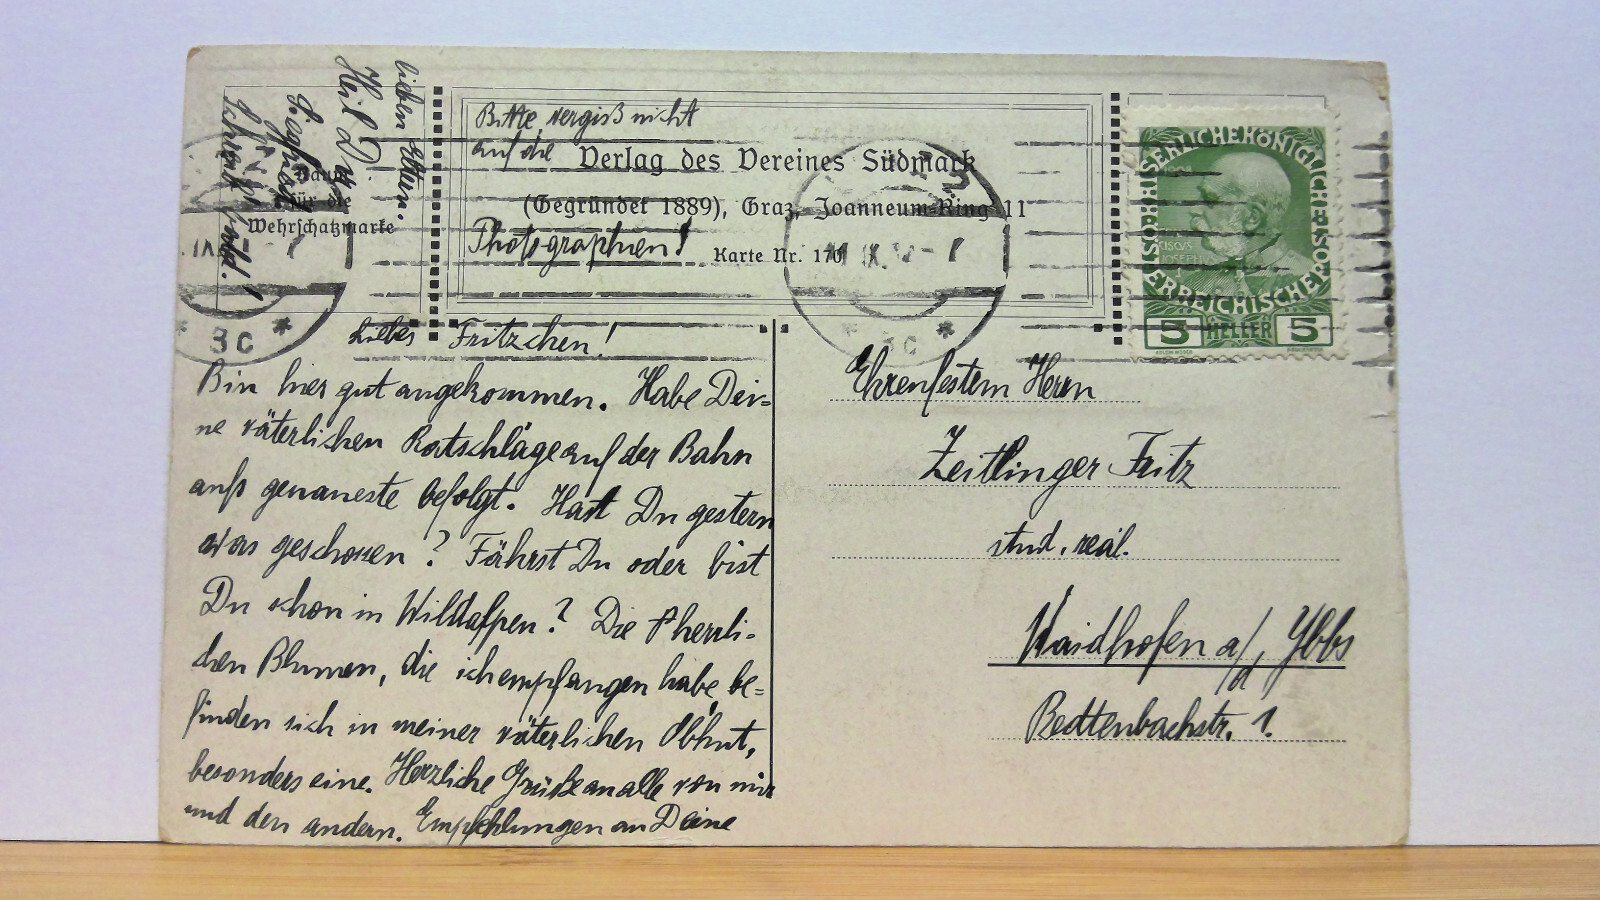 lieben Eltern.
Heil Dir
Schreib bald!
Raum
für die
Wehrschatzmarke
Bitte vergiß nicht
auf die
Photographien!
Verlag des Vereines Südmark
(Gegründet 1889), Graz, Joanneum-Ring 11
Karte Nr. 170
KAISERLICHEKÖNIGLICHE
ÖSTERREICHISCHE POST
5 HELLER 5
3C
3C
Liebes Fritzchen!
Bin hier gut angekommen. Habe Dei=
ne väterlichen Ratschläge auf der Bahn
aufs genaueste befolgt. Hast Du gestern
was geschossen? Fährst Du oder bist
Du schon in Wildalpen? Die herrli-
chen Blumen, die ich empfangen habe, be=
finden sich in meiner väterlichen Obhut,
besonders eine. Herzliche Grüße an alle von mir
und den andern. Empfehlungen an Deine
Ehrenfestem Herrn
Zeitlinger Fritz
stud. real.
Waidhofen a/d. Ybbs